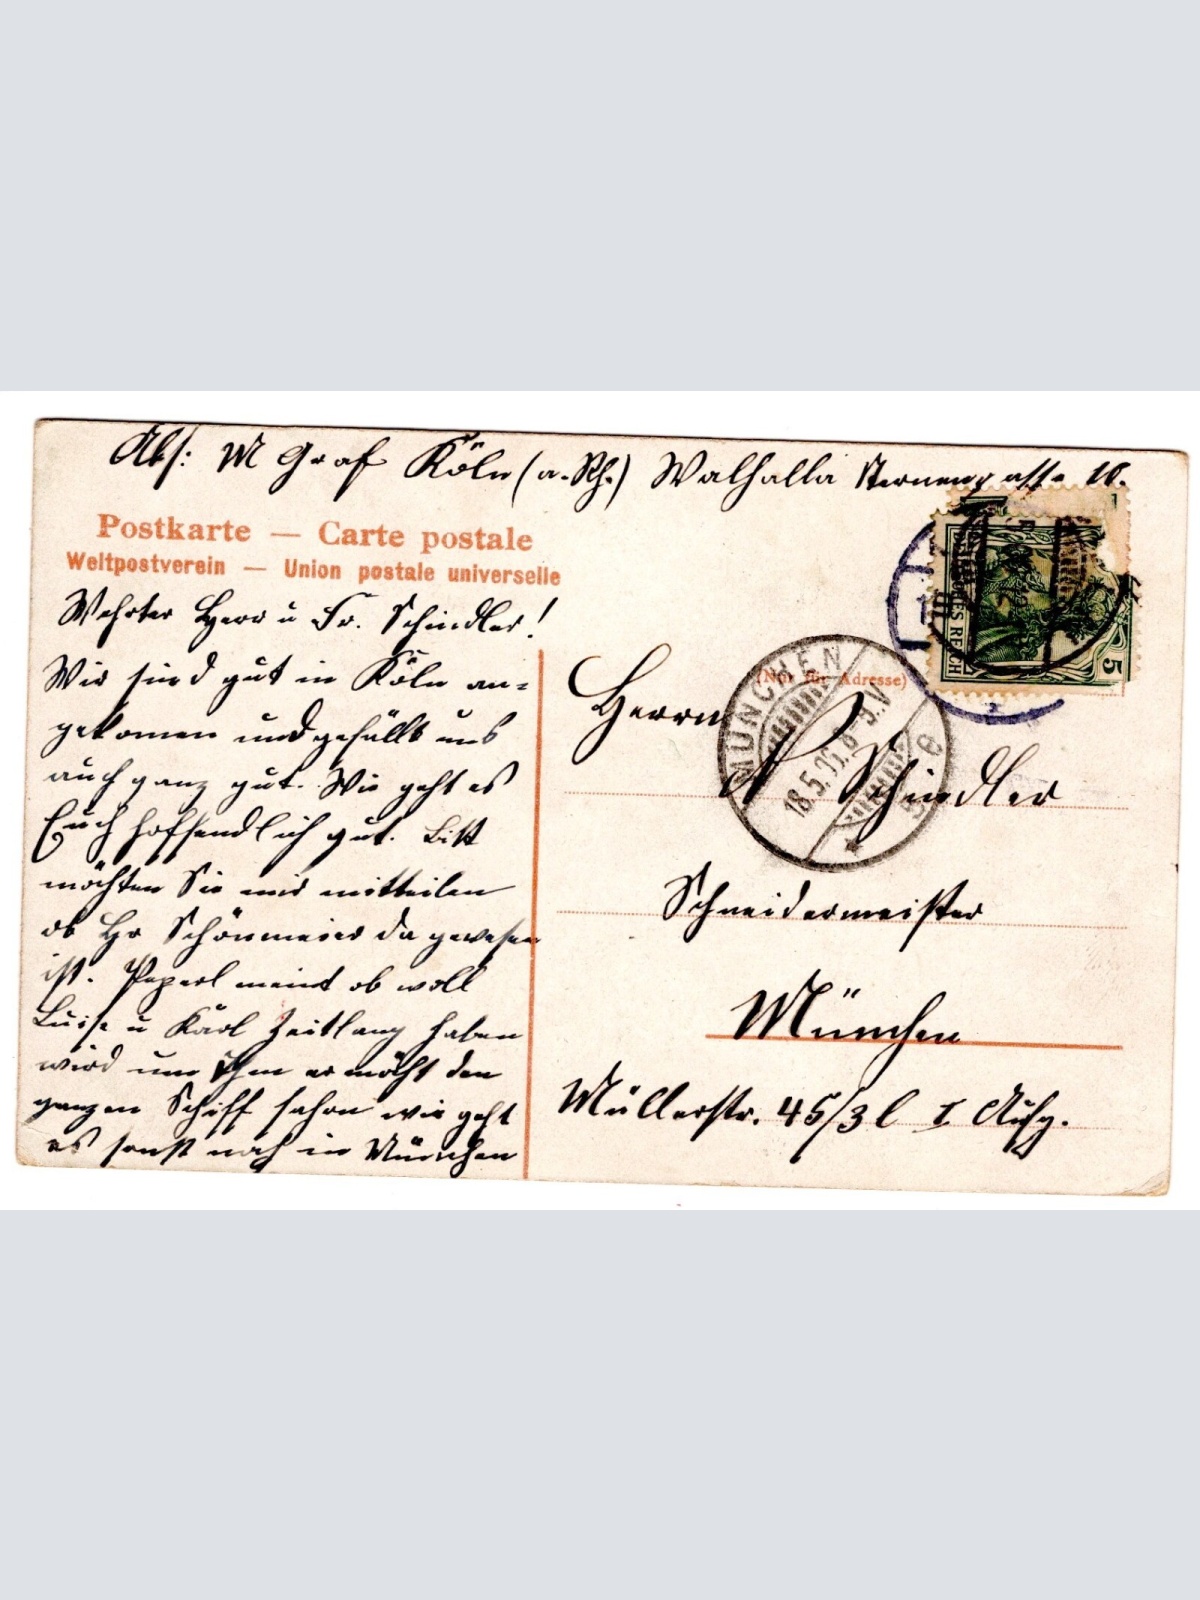 Abs: M Graf Köln (a. Rh.) Walhalla Sternengasse 16.
Postkarte — Carte postale
Weltpostverein — Union postale universelle
Wehrter Herr u Fr. Schindler!
Wir sind gut in Köln an=
gekomen und gefällt uns
auch ganz gut. Wie geht es
Euch hoffendlich gut. Bitt
möchten Sie mir mitteilen
ob Hr Schönmeier da gewesen
ist. Peperl meint ob woll
Luise u Karl Zeitlang haben
wird um Ihm er möcht den
ganzen Schiff fahrn wie geht
es sonst noch in München
(Nur für Adresse)
Herrn
Schindler
Schneidermeister
München
Müllerstr. 45/3 l I Aufg.
MÜNCHEN
18.5. 8-9.V
DEUTSCHES REICH
5